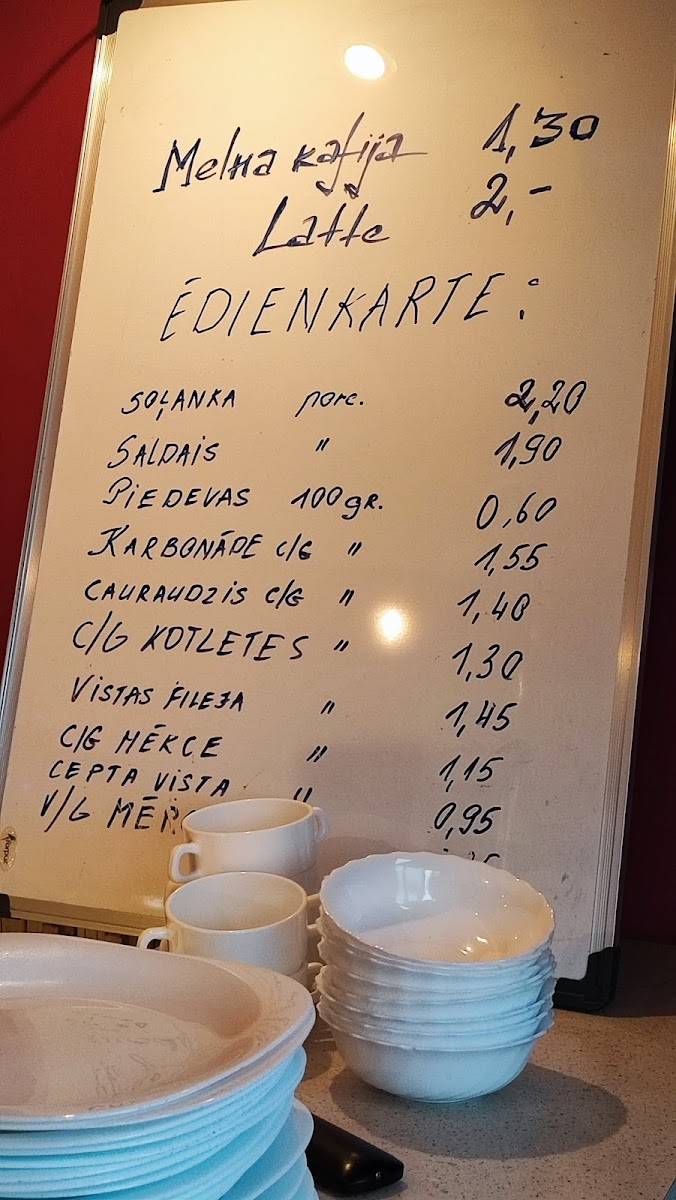 Melna kafija 1,30
Latte 2,-
ĒDIENKARTE:
SOĻANKA porc. 2,20
SALDAIS " 1,90
PIEDEVAS 100gr. 0,60
KARBONĀDE c/G " 1,55
CAURAUDZIS c/G " 1,40
C/G KOTLETES " 1,30
VISTAS FILEJA " 1,45
C/G MĒRCE " 1,15
CEPTA VISTA " 0,95
V/G